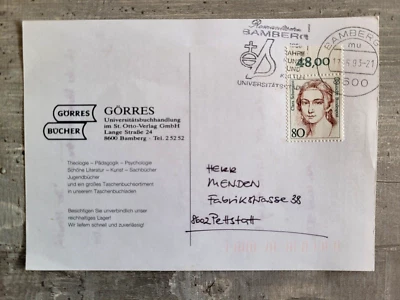 GÖRRES
BÜCHER
GÖRRES
Universitätsbuchhandlung
im St. Otto-Verlag GmbH
Lange Straße 24
8600 Bamberg - Tel. 2 52 52
Theologie – Pädagogik – Psychologie
Schöne Literatur – Kunst – Sachbücher
Jugendbücher
und ein großes Taschenbuchsortiment
in unserem Taschenbuchladen
Besichtigen Sie unverbindlich unser
reichhaltiges Lager!
Wir liefern schnell und zuverlässig!
BAMBERG
JAHRE
KUNST
UND
UNIVERSITÄTS
BAMBERG
mu
8600
48,00
80
HERR
MENDEN
Fabrikstrasse 38
8602 Pettstatt